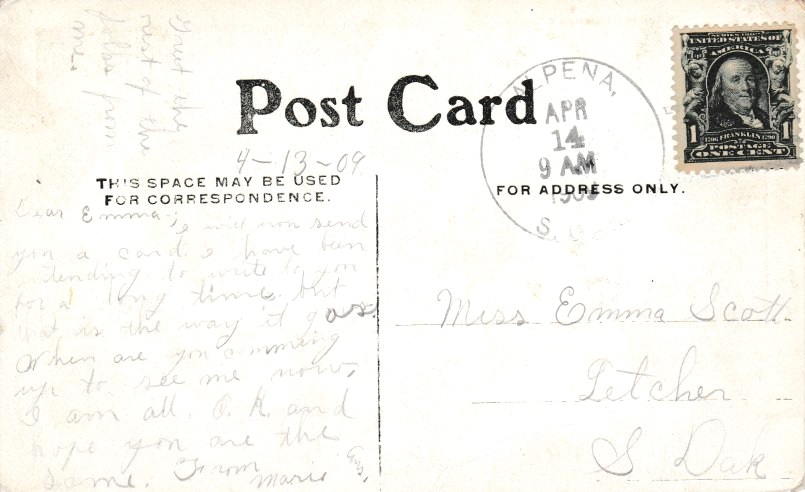 Post Card
THIS SPACE MAY BE USED
FOR CORRESPONDENCE.
FOR ADDRESS ONLY.
4-13-09
Dear Emma:-
I will now send
you a card. I have been
tending to write to you
for a long time. but
that is the way it goes
When are you comming
up to see me now,
I am all O.K. and
hope you are the
same. From
Marie
the
rest of the
folks from
me.
ALPENA,
APR
14
9 AM
S.
SERIES 1902
UNITED STATES OF
AMERICA
1 1
1706 FRANKLIN 1790
POSTAGE
ONE CENT
Miss Emma Scott.
Letcher
S Dak